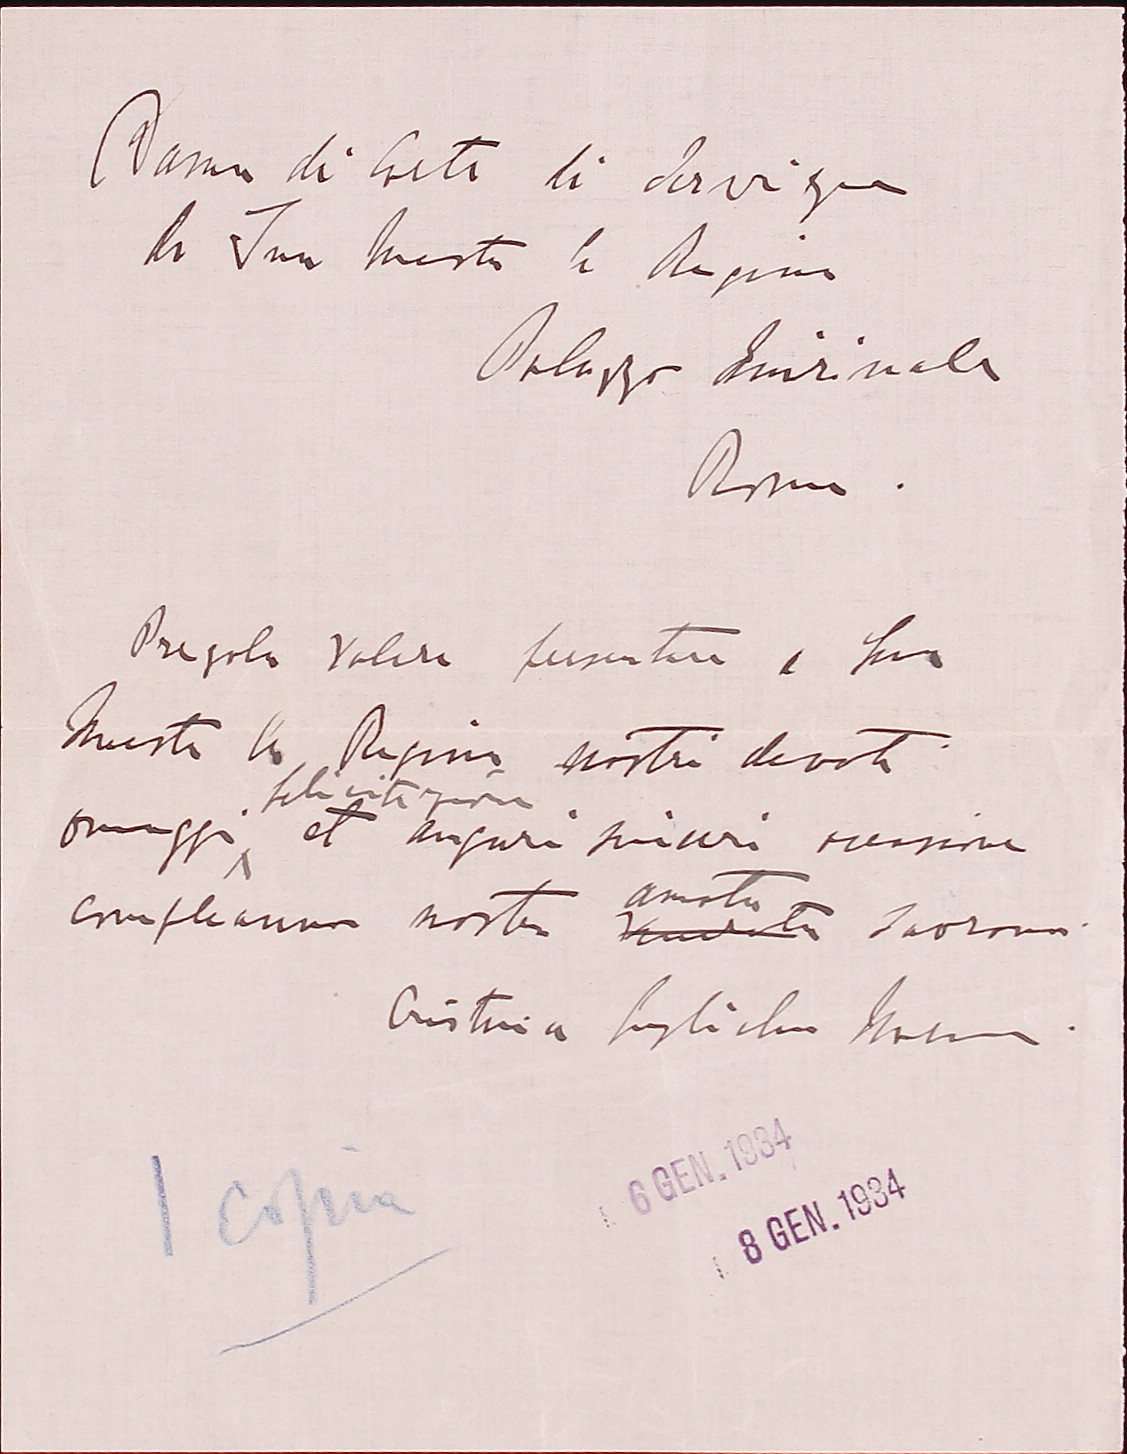 Dama di Corte di Servizio
di Sua Maestà la Regina
Palazzo Quirinale
Roma.
Pregola volere presentare a Sua
Maestà la Regina nostri devoti
felicitazioni
omaggi, et auguri sinceri occasione
compleanno nostra amata
venerata Sovrana.
Cristina Guglielmo Marconi.
1 copia
6 GEN. 1934
8 GEN. 1934